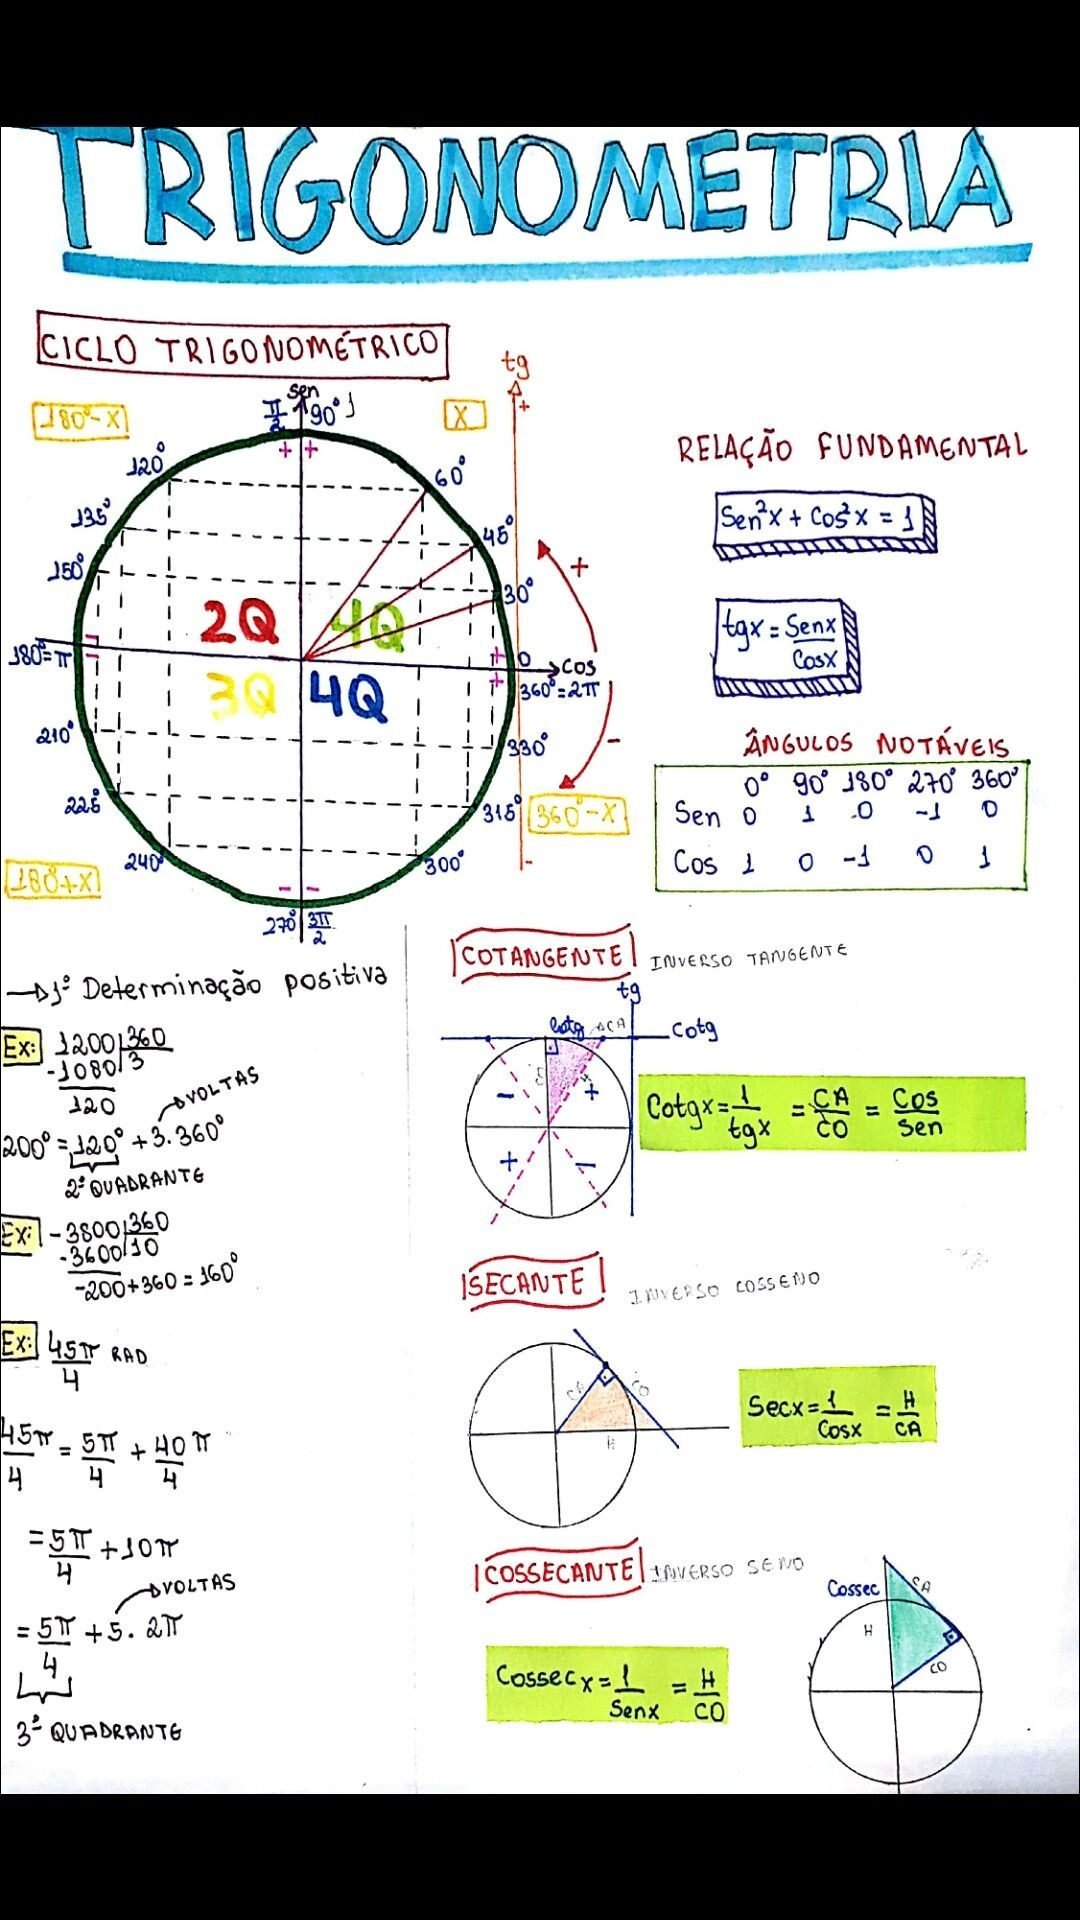 TRIGONOMETRIA
CICLO TRIGONOMÉTRICO
tg
+
sen
π/2 90° 1
180°-X
X
+ +
120°
60°
135°
45°
150°
30°
+
2Q 4Q
180°=π
- -
+ +
0
COS
360°=2π
3Q 4Q
210°
330°
-
225°
315°
360°-X
240°
300°
180°+X
- -
-
270° 3π/2
RELAÇÃO FUNDAMENTAL
Sen²X + Cos²X = 1
tgx = Senx/Cosx
ÂNGULOS NOTÁVEIS
0° 90° 180° 270° 360°
Sen 0 1 0 -1 0
Cos 1 0 -1 0 1
1º Determinação positiva
Ex: 1200 360
-1080 3
120
VOLTAS
200° = 120° + 3.360°
2º QUADRANTE
Ex: -3800 360
-3600 10
-200+360 = 160°
Ex: 45π/4 RAD
45π/4 = 5π/4 + 40π/4
= 5π/4 + 10π
VOLTAS
= 5π/4 + 5. 2π
3º QUADRANTE
COTANGENTE INVERSO TANGENTE
tg
Cotg CA Cotg
- +
+ -
Cotgx = 1/tgx = CA/CO = Cos/Sen
SECANTE INVERSO COSSENO
CA CO
H
Secx = 1/Cosx = H/CA
COSSECANTE INVERSO SENO
Cossec CA
H
CO
Cossecx = 1/Senx = H/CO